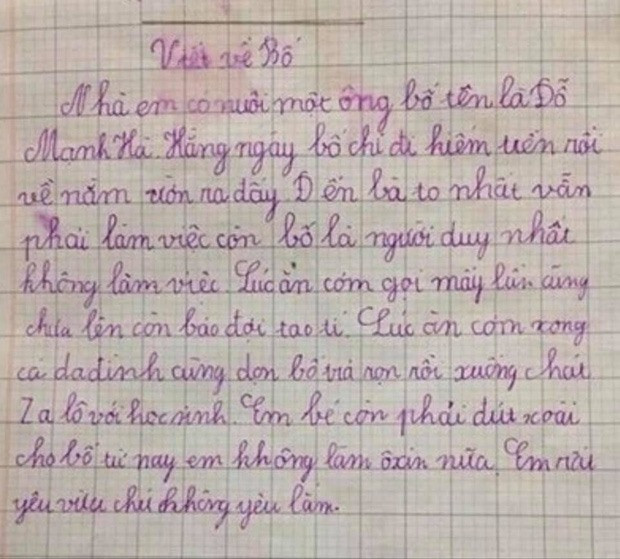 Viết về Bố
Nhà em có nuôi một ông bố tên là Đỗ
Mạnh Hà. Hàng ngày bố chỉ đi kiếm tiền rồi
về nằm ườn ra đấy. Đến bà to nhất vẫn
phải làm việc còn bố là người duy nhất
không làm việc. Lúc ăn cơm gọi mấy lần cũng
chưa lên còn bảo đợi tao tí. Lúc ăn cơm xong
cả dađình cùng dọn bố trả rọn rồi xuống chát
Za lô với học sinh. Em bé còn phải đút xoài
cho bố từ nay em không làm ôxin nữa. Em
yêu chứ không yêu lắm.